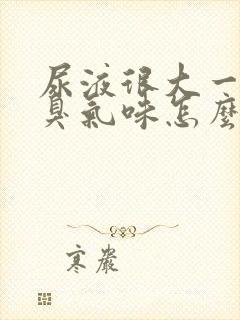 尿液很大一
臭氣味怎麼
寒巖